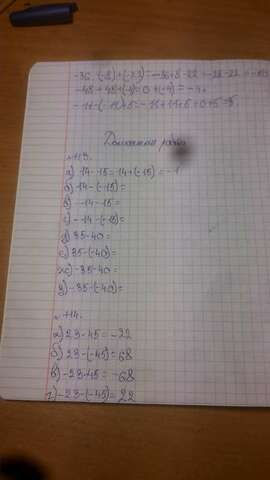 -36-(-8)+(-22)=-36+8-22=-28-22=
-48+48+(-4)=0+(-4)=-4.
-11-(-11)+5=-11+11+5=0+5=5.
Домашняя работа
№113.
а) 14-15=14+(-15)=-1
б) 14-(-15)=
в) -14-15=
г) -14-(-15)=
д) 35-40=
е) 35-(-40)=
ж) -35-40=
з) -35-(-40)=
№114.
а) 23-45=-22
б) 23-(-45)=68
в) -23-45=-68
г) -23-(-45)=22